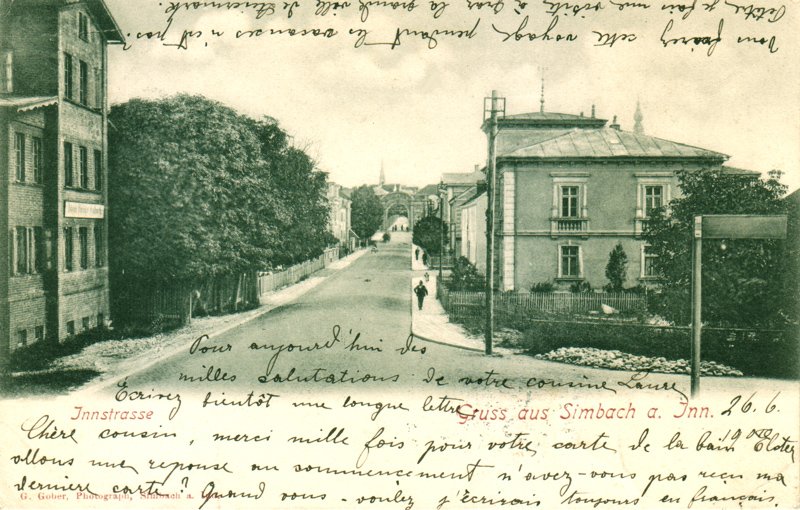 Petite, je fais une visite à Graz la grande ville de Steiermark.
Vous ferez cette voyage pendant les vacances n'est pas?
Pour aujourd'hui des
milles salutations de votre cousine Laure
Ecrivez bientôt une longue lettre.
Innstrasse
Gruss aus Simbach a. Inn.
26.6.
1900
Chère cousin, merci mille fois pour votre carte de la
allons une reponse au commencement n'avez-vous pas recu ma
dernière carte? Quand vous-voulez j'écrirais toujours en français.
G. Gober, Photograph, Simbach a.